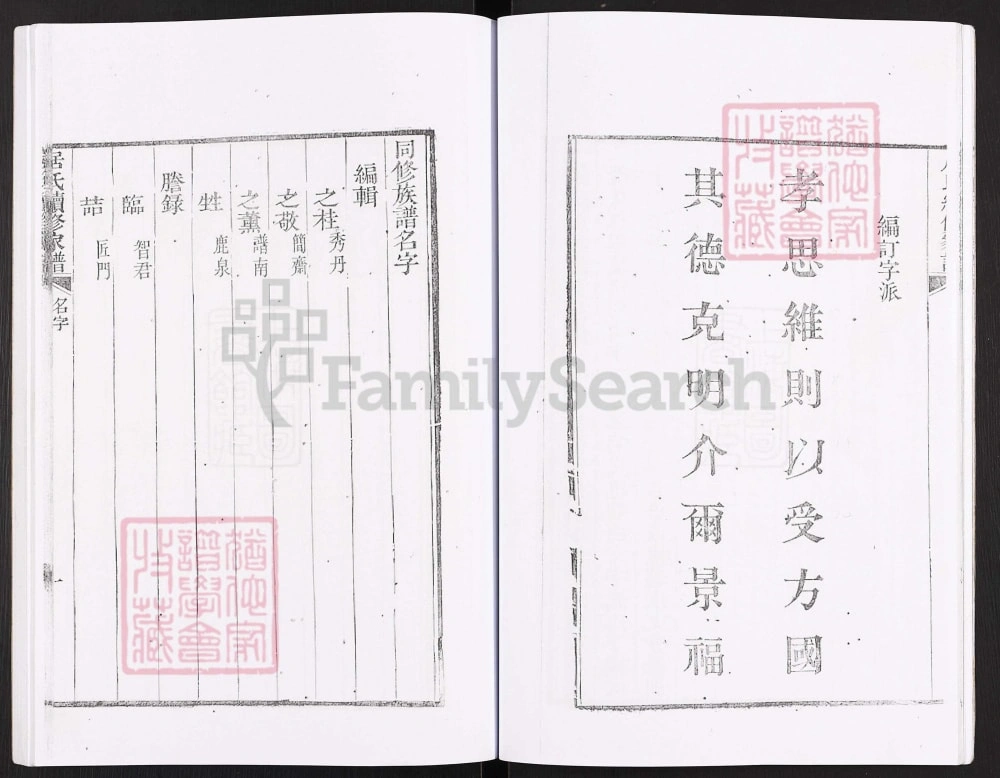 編訂字派
孝思維則以受方國
其德克明介爾景福
同修族譜名字
編輯
之桂 秀丹
之敬 簡齋
之薰 譜南
甡 鹿泉
謄録
臨 智君
喆 匠門
居氏續修家譜 名字 一
FamilySearch
譜學會
收藏